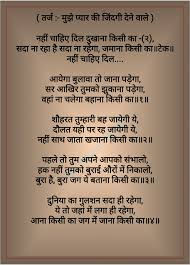 ( तर्ज :- मुझे प्यार की जिंदगी देने वाले )
नहीं चाहिए दिल दुखाना किसी का -(२),
सदा ना रहा है सदा ना रहेगा, जमाना किसी का॥टेक॥
नहीं चाहिए दिल....
आयेगा बुलावा तो जाना पड़ेगा,
सर आखिर तुमको झुकाना पड़ेगा,
वहां ना चलेगा बहाना किसी का॥१॥
शौहरत तुम्हारी बह जायेगी ये,
दौलत यही पर रह जायेगी ये,
नहीं साथ जाता खजाना किसी का॥२॥
पहले तो तुम अपने आपको संभालो,
हक नहीं तुमको बुराई औरों में निकालो,
बुरा है, बुरा जग ये बताना किसी का॥३॥
दुनिया का गुलशन सदा ही रहेगा,
ये तो जहां में लगा ही रहेगा,
आना किसी का जग में जाना किसी का॥४॥